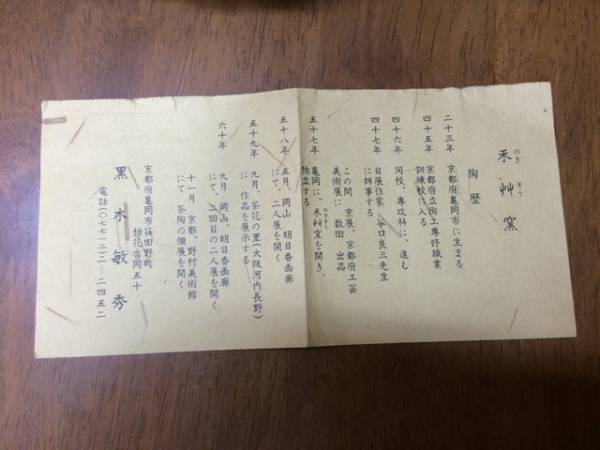 のぎ そう
禾艸窯
陶歴
二十三年 京都府亀岡市に生まる
四十五年 京都府立陶工専修職業
訓練校へ入る
四十六年 同校、専攻科に、進む
四十七年 日展作家 谷口良三先生
に師事する
この間、京展、京都府工芸
美術展に 数回 出品
五十七年 亀岡に、禾艸窯を開き、
独立する
五十八年 五月、岡山 明日香画廊
にて、二人展を開く
五十九年 九月、茶花の里(大阪河内長野)
に 作品を展示する
六十年 九月、岡山、明日香画廊
にて、二回目の二人展を開く
十一月 京都、野村美術館
にて 茶陶の個展を開く
京都府亀岡市稗田野町
柿花吉岡五十
黒木敏秀
電話(〇七七一二)二―二四五二